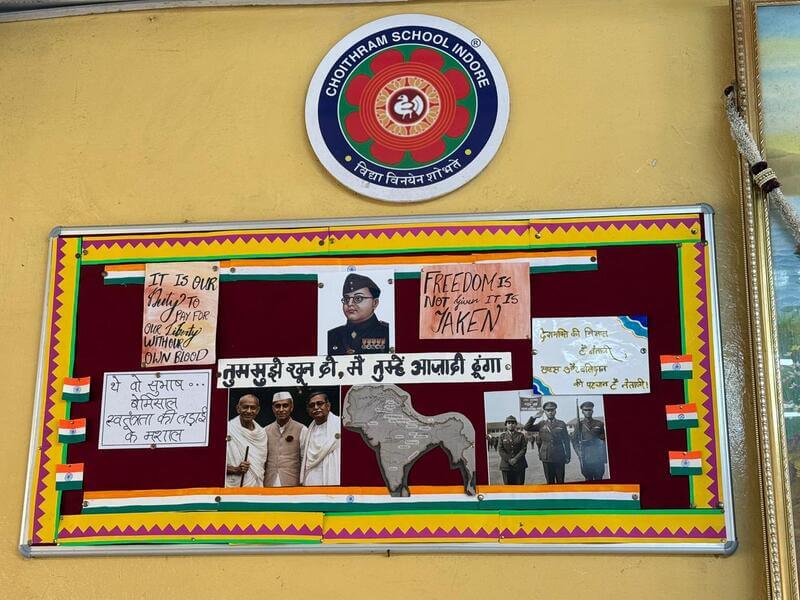 CHOITHRAM SCHOOL INDORE
®
विद्या विनयेन शोभते
IT IS OUR
Duty TO
PAY FOR
OUR Liberty
WITH OUR
OWN BLOOD
FREEDOM IS
NOT given IT IS
TAKEN
देशभक्ति की मिसाल
हैं नेताजी
साहस और बलिदान
की पहचान हैं नेताजी।
तुम मुझे खून दो, मैं तुम्हें आजादी दूंगा
थे वो सुभाष ...
बेमिसाल
स्वतंत्रता की लड़ाई
के मशाल